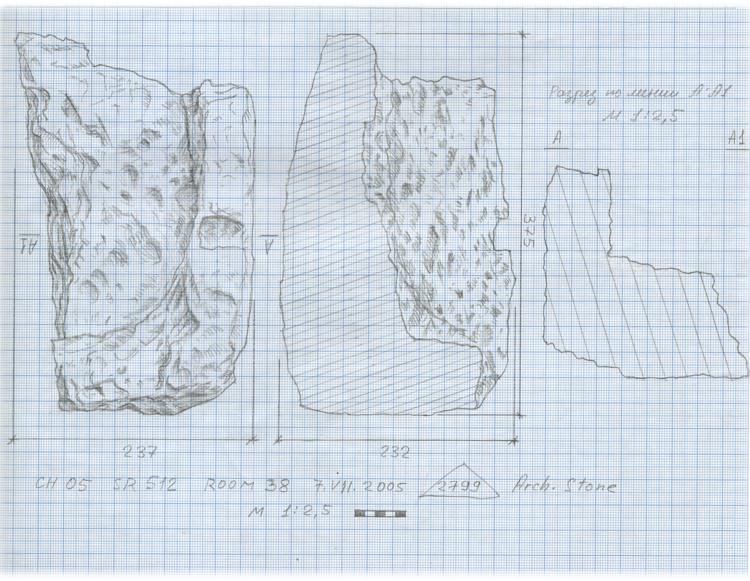 Разрез по линии А-А1
М 1:2,5
А А1
А1 А
375
237 232
CH 05 SR 512 ROOM 38 7.VII.2005 2799 Arch. Stone
М 1:2,5